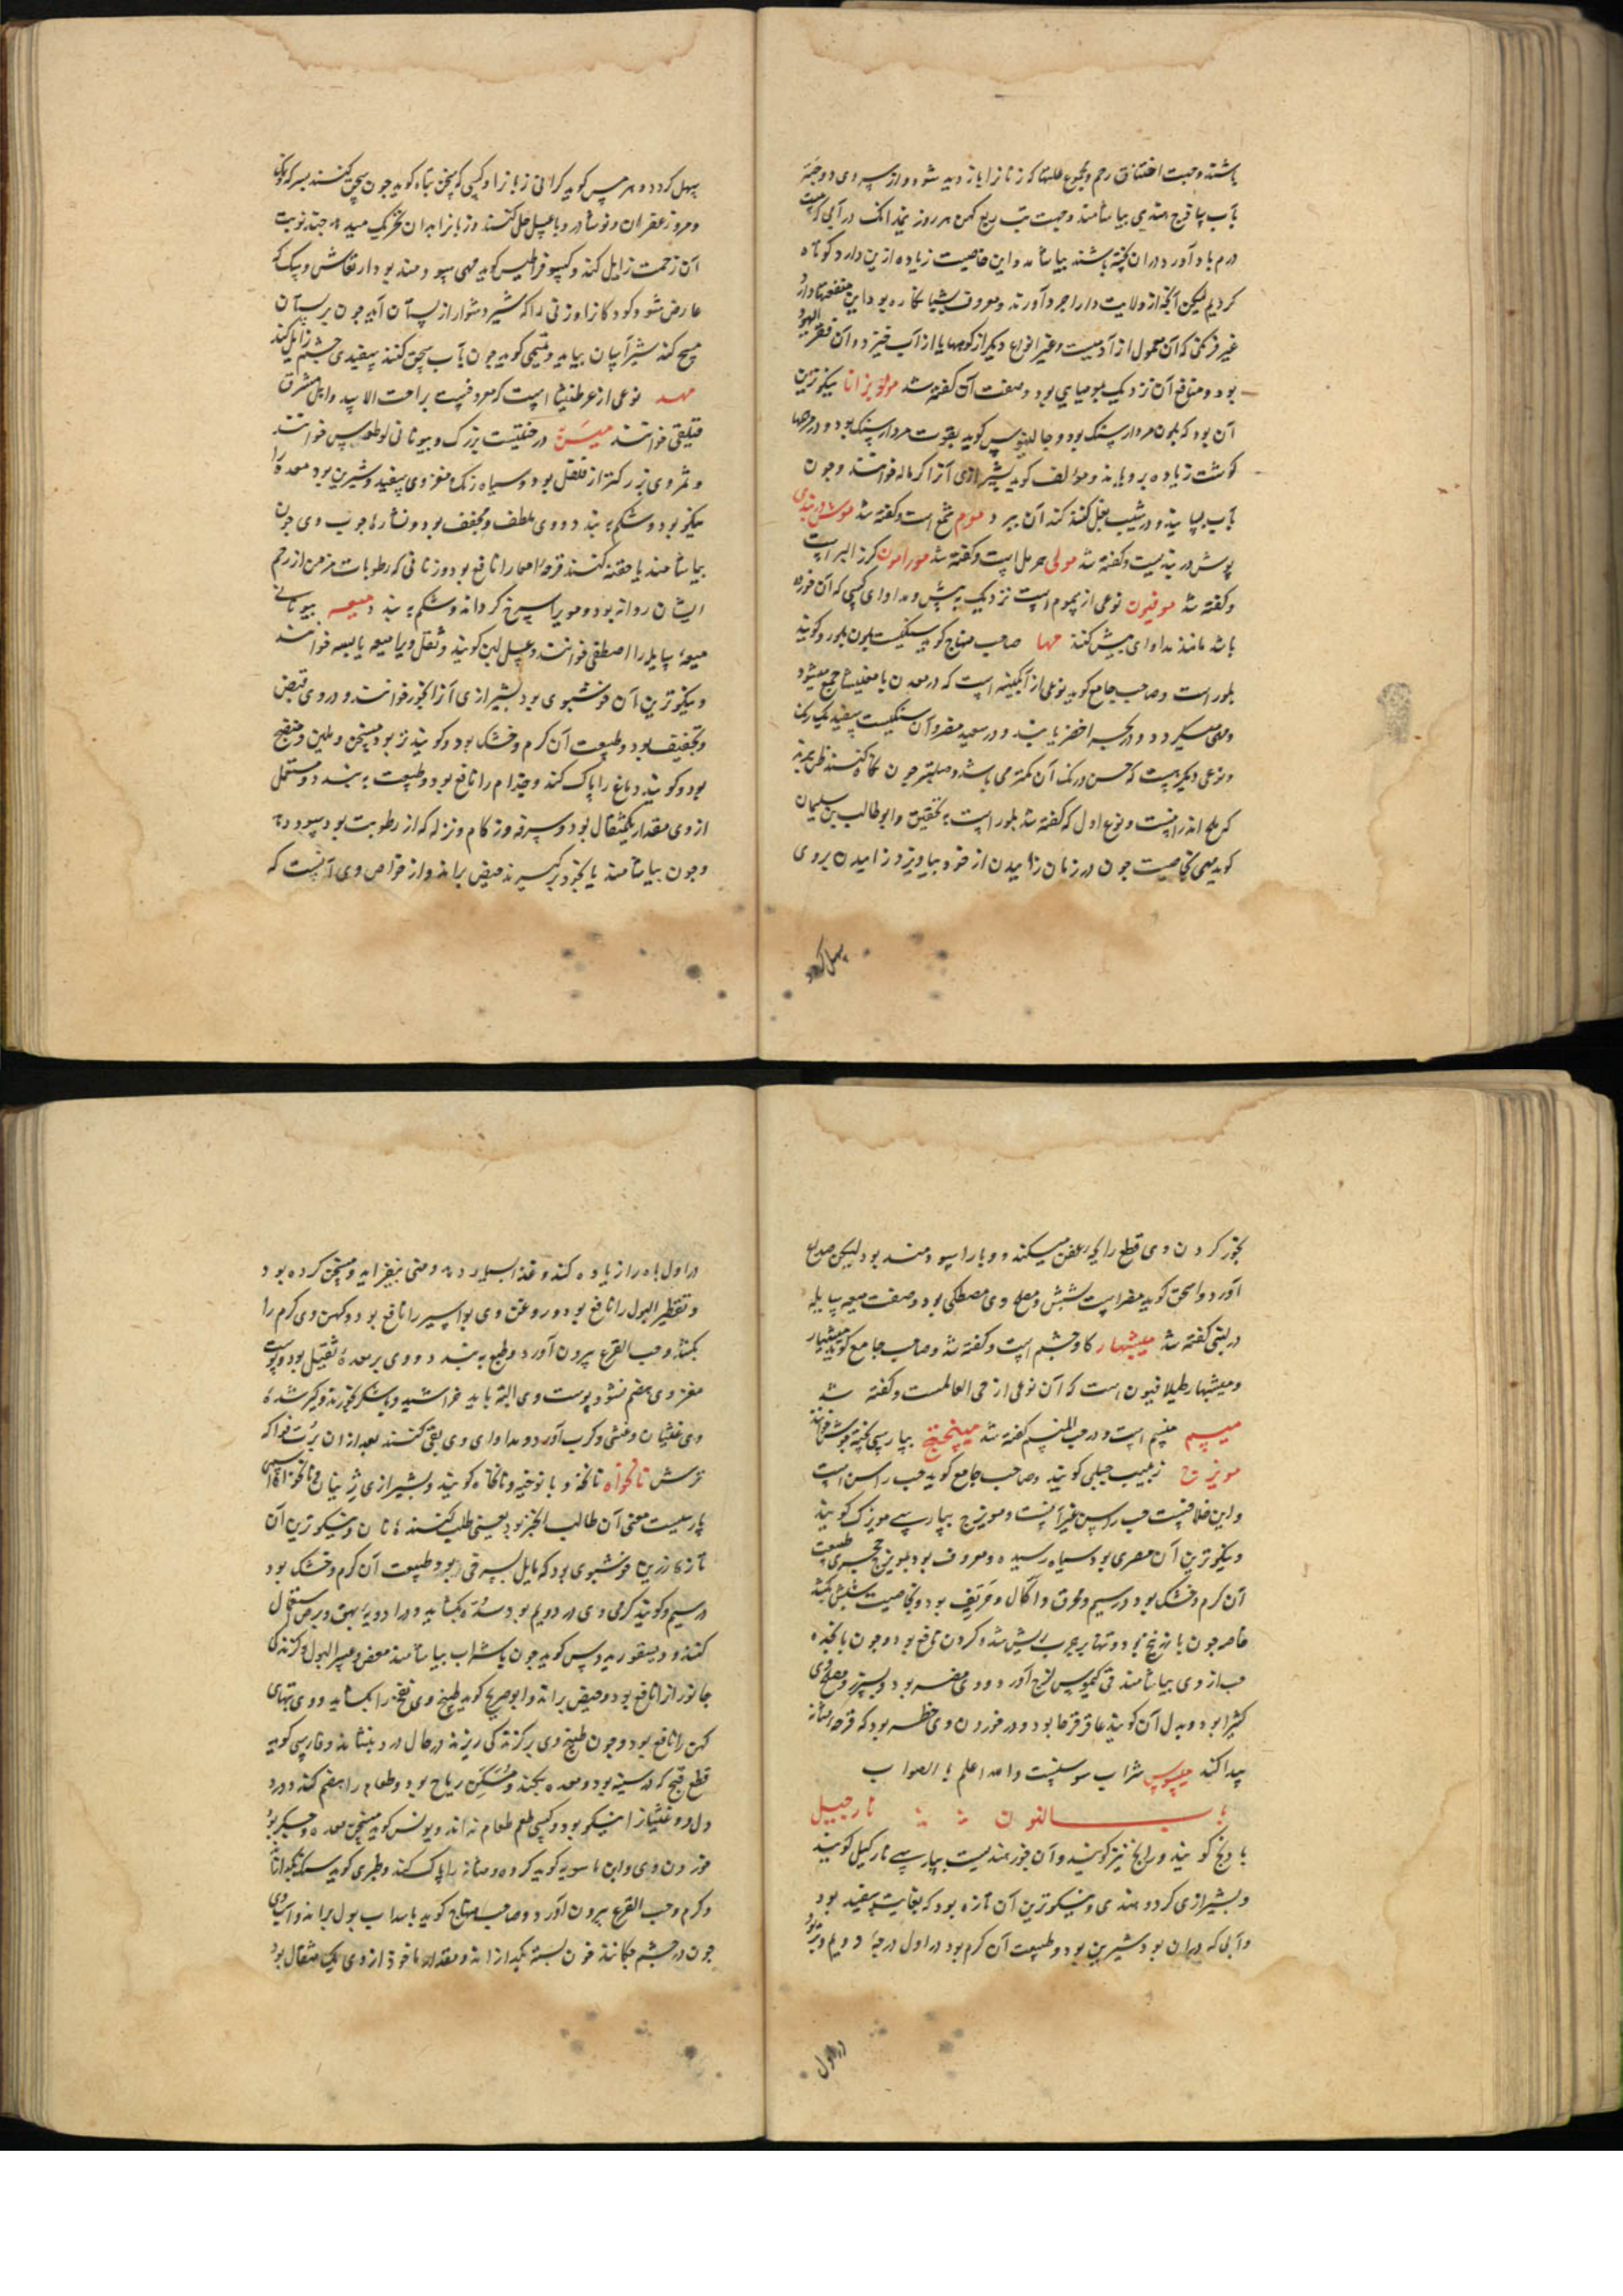 باشد و جهت اختناق رحم و مجموع علتها که زنانرا باز دید شود و از سردی دو حبه
بآب یا قدح هندی بیاشامند و جهت تب ربع کهن هر روز نیم دانک در آبی که بیست
درم باد آورد در ان پخته باشند بیاشامد و این خاصیت زیاده ازین دارد کوتاه
کردیم لیکن آنچه از ولایت دارابجرد آورند و معروف بشبانکاره بود این منفعتها دارد
غیر فرنکی که آن معمول از آدمیست و غیر انواع دیکر از کوهها یا از آب خیزد و آن قفر الیهود
بود و منافع آن نزدیک بمومیای بود و صفت آن کفته شد مولوبزانا نیکوترین
آن بود که بلون مردارسنک بود و جالینوس کوید بقوت مردارسنک بود و در مرهمها
کوشت زیاده برویاند و مؤلف کوید بشیرازی آنرا کرماله خوانند و چون
بآب بسایند و در شیب بغل کنند کند آن ببرد موم شمع است و کفته شد موش دربندی
پوش دربندیست و کفته شد مولی حرمل است و کفته شد مورامون کرز البر است
و کفته شد موفیون نوعی از یحموم است نزدیک به بیش و مداوای کسی که آن خورده
باشد مانند مداوای بیش کنند مها صاحب منهاج کوید سنکیست بلون بلور و کویند
بلور است و صاحب جامع کوید نوعی از آبکینه است که در معدن با مغنیسا جمع میشود
و نوعی دیکر هست که حسن و رنک آن کمتر می باشد و صلبتر چون نکاه کنند ظن برند
که ملح اندرانیست و نوع اول که کفته شد بلور است بتحقیق و ابوطالب بن سلیمان
کوید مهی بخاصیت چون در زمان زاییدن از خود بیاویزد زاییدن بروی
سهل کردد
سهل کردد و هرمس کوید کرانی زبانرا و کسی که سخن تباه کوید چون سحق کنند بسرکه
و مر و زعفران و نوشادر و با عسل حل کنند و زبانرا بدان تحریک میدهد چند نوبت
آن زحمت زایل کند و کسوفراطیس کوید مهی سودمند بود ارتعاش و سل که
عارض شود کودکانرا و زنی را که شیر دشوار از پستان آید چون بر پستان
مسح کند شیر آسان بیاید و تمیمی کوید چون بآب سحق کنند سپیدی چشم زایل کند
مهد نوعی از عرطنیثا است که معروفست براحت الاسد و اهل مشرق
قبلیقی خوانند میسَن درختیست بزرک و بیونانی لوطوس خوانند
و ثمر وی بزرکتر از فلفل بود و سیاه رنک و مغز وی سپید و شیرین بود معده را
نیکو بود و شکم ببندد و وی ملطف و مجفف بود و نشاره چوب وی چون
بیاشامند یا حقنه کنند قرحه امعا را نافع بود و زنانی که رطوبات مزمن از رحم
ایشان روانه بود و موی را سرخ کرداند و شکم ببندد میعه بیونانی
میعه سایله را اصطفی خوانند و عسل لبنی کویند و ثفل ویرا میعه یابسه خوانند
و نیکوترین آن خوشبوی بود بشیرازی آنرا بخور خوانند و در وی قبض
و تجفیف بود و طبیعت آن کرم و خشک بود و کویند تر بود و مسخن و ملین و منضج
بود و کویند دماغ را پاک کند و جذام را نافع بود و طبیعت ببندد و مستعمل
از وی مقدار یکمثقال بود و سرفه و زکام و نزله که از رطوبت بود سود دهد
و چون بیاشامند یا بخود برکیرند حیض براند و از خواص وی آنست که
بخور کردن وی قطع رایحه عفن میکند و وبا را سودمند بود لیکن صداع
آورد و اسحق کوید مضر است بشش و مصلح وی مصطکی بود و صفت میعه سایله
در لبنی کفته شد میشبهار کاوچشم است و کفته شد و صاحب جامع کوید میشبهار
و میشبهار طیلافیون است که آن نوعی از حی العالمست و کفته شد
میسم منسم است و در حب المنسم کفته شد میپختج بپارسی پخته جوش خوانند
مویزج زبیب جبلی کویند و صاحب جامع کوید حب راسن است
و این خلافیست حب راسن غیر آنست و مویزج بپارسی مویزک کویند
و نیکوترین آن مصری بود سیاه رسیده و معروف بود بمویزج حجری طبیعت
آن کرم و خشک بود در سیم و محرق و اکّال و حَریف بود و بخاصیت شپش بکشد
خاصه چون با زرنیخ بود و تنها بر جرب ریش شده کردن نافع بود و چون پانجده
حب از وی بیاشامند قی کیموس لزج آورد و وی مضر بود بسپرز و مصلح وی
کثیرا بود و بدل آن کویند عاقرقرحا بود و در خوردن وی خطر بود که قرحه مثانه
پیدا کند میسوس شراب سوسنست والله اعلم بالصواب
باب النون نارجیل
بادنج کویند و رانج نیز کویند و آن جوز هندیست بپارسی نارکیل کویند
و بشیرازی کردو هندی و نیکوترین آن تازه بود که بغایت سفید بود
و آبی که در ان بود شیرین بود و طبیعت آن کرم بود در اول درجه دویم و تر بود
در اول
در اول باه را زیاده کند و غذا بسیار دهد و منی بیفزاید و مسخن کرده بود
و تقطیر البول را نافع بود و روغن وی بواسیر را نافع بود و کهن وی کرم را
بکشد و حب القرع بیرون آورد و طبع ببندد و وی بر معده ثقیل بود و پوست
مغز وی هضم نشود پوست وی البته باید خراشید و با شکر خورند و کیر شده
وی غثیان و غشی و کرب آورد و مداوای وی بقی کنند بعد از ان رُبّ فواکه
ترش نانخواه نانخه و با نوخیه و نانخاه کویند و بشیرازی زینان و نانخواه اسمی
پارسیست معنی آن طالب الخبز بود یعنی طلب کننده نان و نیکوترین آن
تازه زرین خوشبوی بود که مایل بسرخی بود و طبیعت آن کرم و خشک بود
در سیم و کویند کرمی وی در دویم بود و سُدّه بکشاید و در ادویه بهق و برص مستعمل
کنند و دیسقوریدوس کوید چون باشراب بیاشامند مغص و عسر البول و کزندکی
جانوران را نافع بود و حیض براند و ابوجریح کوید طبیخ وی نفخ را بکشاید و وی تبهای
کهن را نافع بود و چون طبیخ وی بر کزندکی ریزند در حال درد بنشاند و فارسی کوید
قطع قیح که در سینه بود و معده بکند و مُسَکِّن ریاح بود و طعام را هضم کند و درد
دل و غثیان را نیکو بود و کسی طعم طعام نداند و یونس کوید مسخن معده و جکر بود
خوردن وی و ابن ماسویه کوید کرده و مثانه را پاک کند و طبری کوید سنک بکدازاند
و کرم و حب القرع بیرون آورد و صاحب منهاج کوید باسداب بول براند و آب وی
چون در چشم چکانند خون بسته بکدازاند و مقدار ماخوذ از وی یک مثقال بود